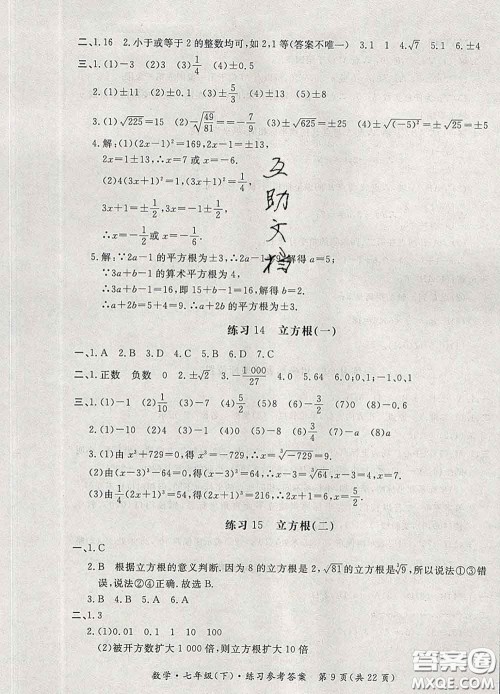 二、1.16 2.小于或等于2的整数均可,如2,1等(答案不唯一) 3.1 1 4.√7 5.1 6.±4
三、1.(1)-3 (2)±3 (3)1/4
2.(1)±11 (2)±0.1 (3)±5/3 (4)±13
3.(1)√225=15 (2)-√(49/81)=-7/9 (3)±√625=±25 (4)±√(-5)²=±√25=±5
4.解:(1)(2x-1)²=169,
2x=1±13,∴x=7或x=-6.
(2)4(3x+1)²=1,(3x+1)²=1/4,
3x+1=±1/2,3x=-1±1/2,
∴x=-1/6或x=-1/2.
5.解:∵2a-1的平方根为±3,∴2a-1=9,解得a=5;
∵3a+b-1的算术平方根为4,
∴3a+b-1=16,∴15+b-1=16,解得b=2;
∴a+2b=5+4=9,∴a+2b的平方根为±3.
互助文档
练习14 立方根(一)
一、1.A 2.B 3.D 4.A 5.D 6.D 7.C
二、1.正数 负数 0 2.±√2 3.-1 000/27 4.0.3 5.-3 6.0,1 0 -1,0,1
三、1.(1)1/10 (2)-1 (3)-1/6 (4)20 (5)2/3 (6)-0.6
2.(1)-3 (2)0.4 (3)-4/3 (4)9
3.(1)由x³+729=0,得x³=-729,∴x=∛-729=-9.
(2)由(x-3)³-64=0,得(x-3)³=64,∴x-3=4,∴x=7.
(3)由1/4(2x+2)³=54,得(2x+2)³=216,∴2x+2=6,∴x=2.
练习15 立方根(二)
一、1.C
2.B 根据立方根的意义判断.因为8的立方根是2,√81的平方根是√9,所以说法①③错
误,说法②④正确.故选B.
3.B 4.A 5.A 6.B
二、1.3
2.(1)0.01 0.1 1 10 100
(2)被开方数扩大1 000倍,则立方根扩大10倍
数学·七年级(下)·练习参考答案 第9页(共22页)
答案圈
MXQE.COM